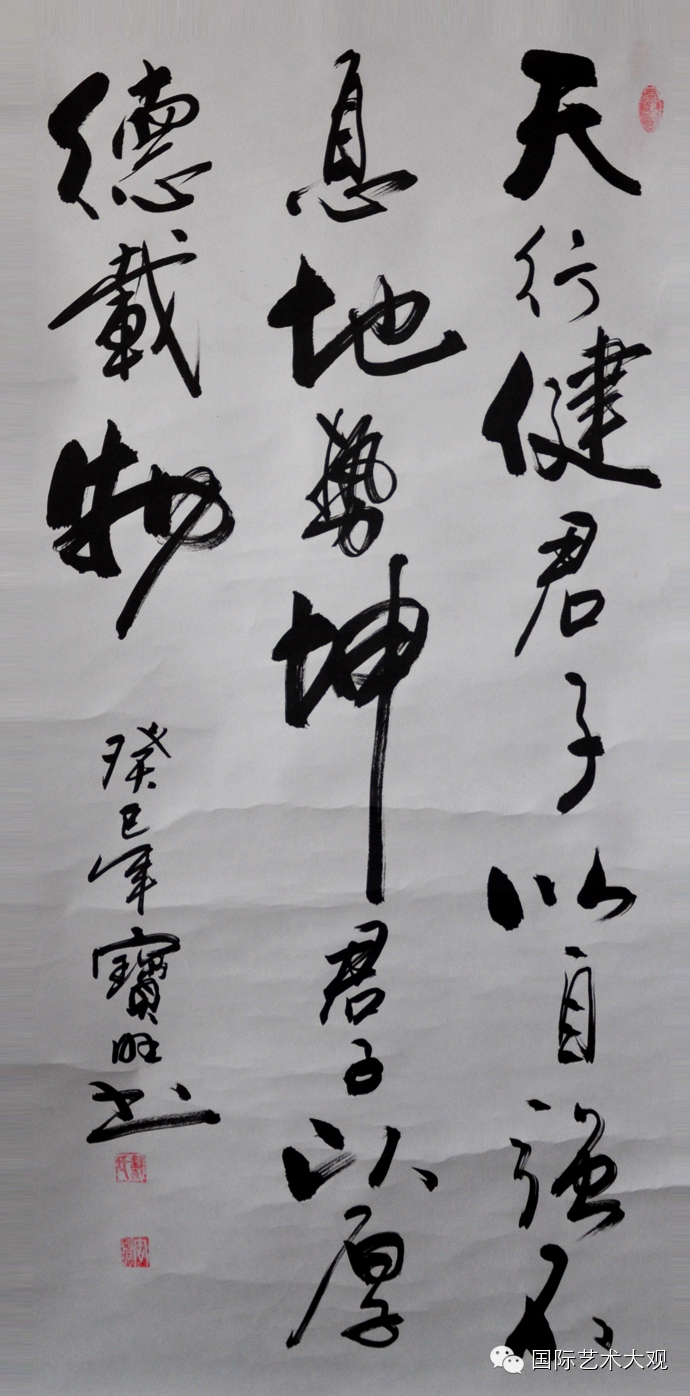 天行健君子以自強不
息地勢坤君子以厚
德載物
癸巳年寶旺书
国际艺术大观